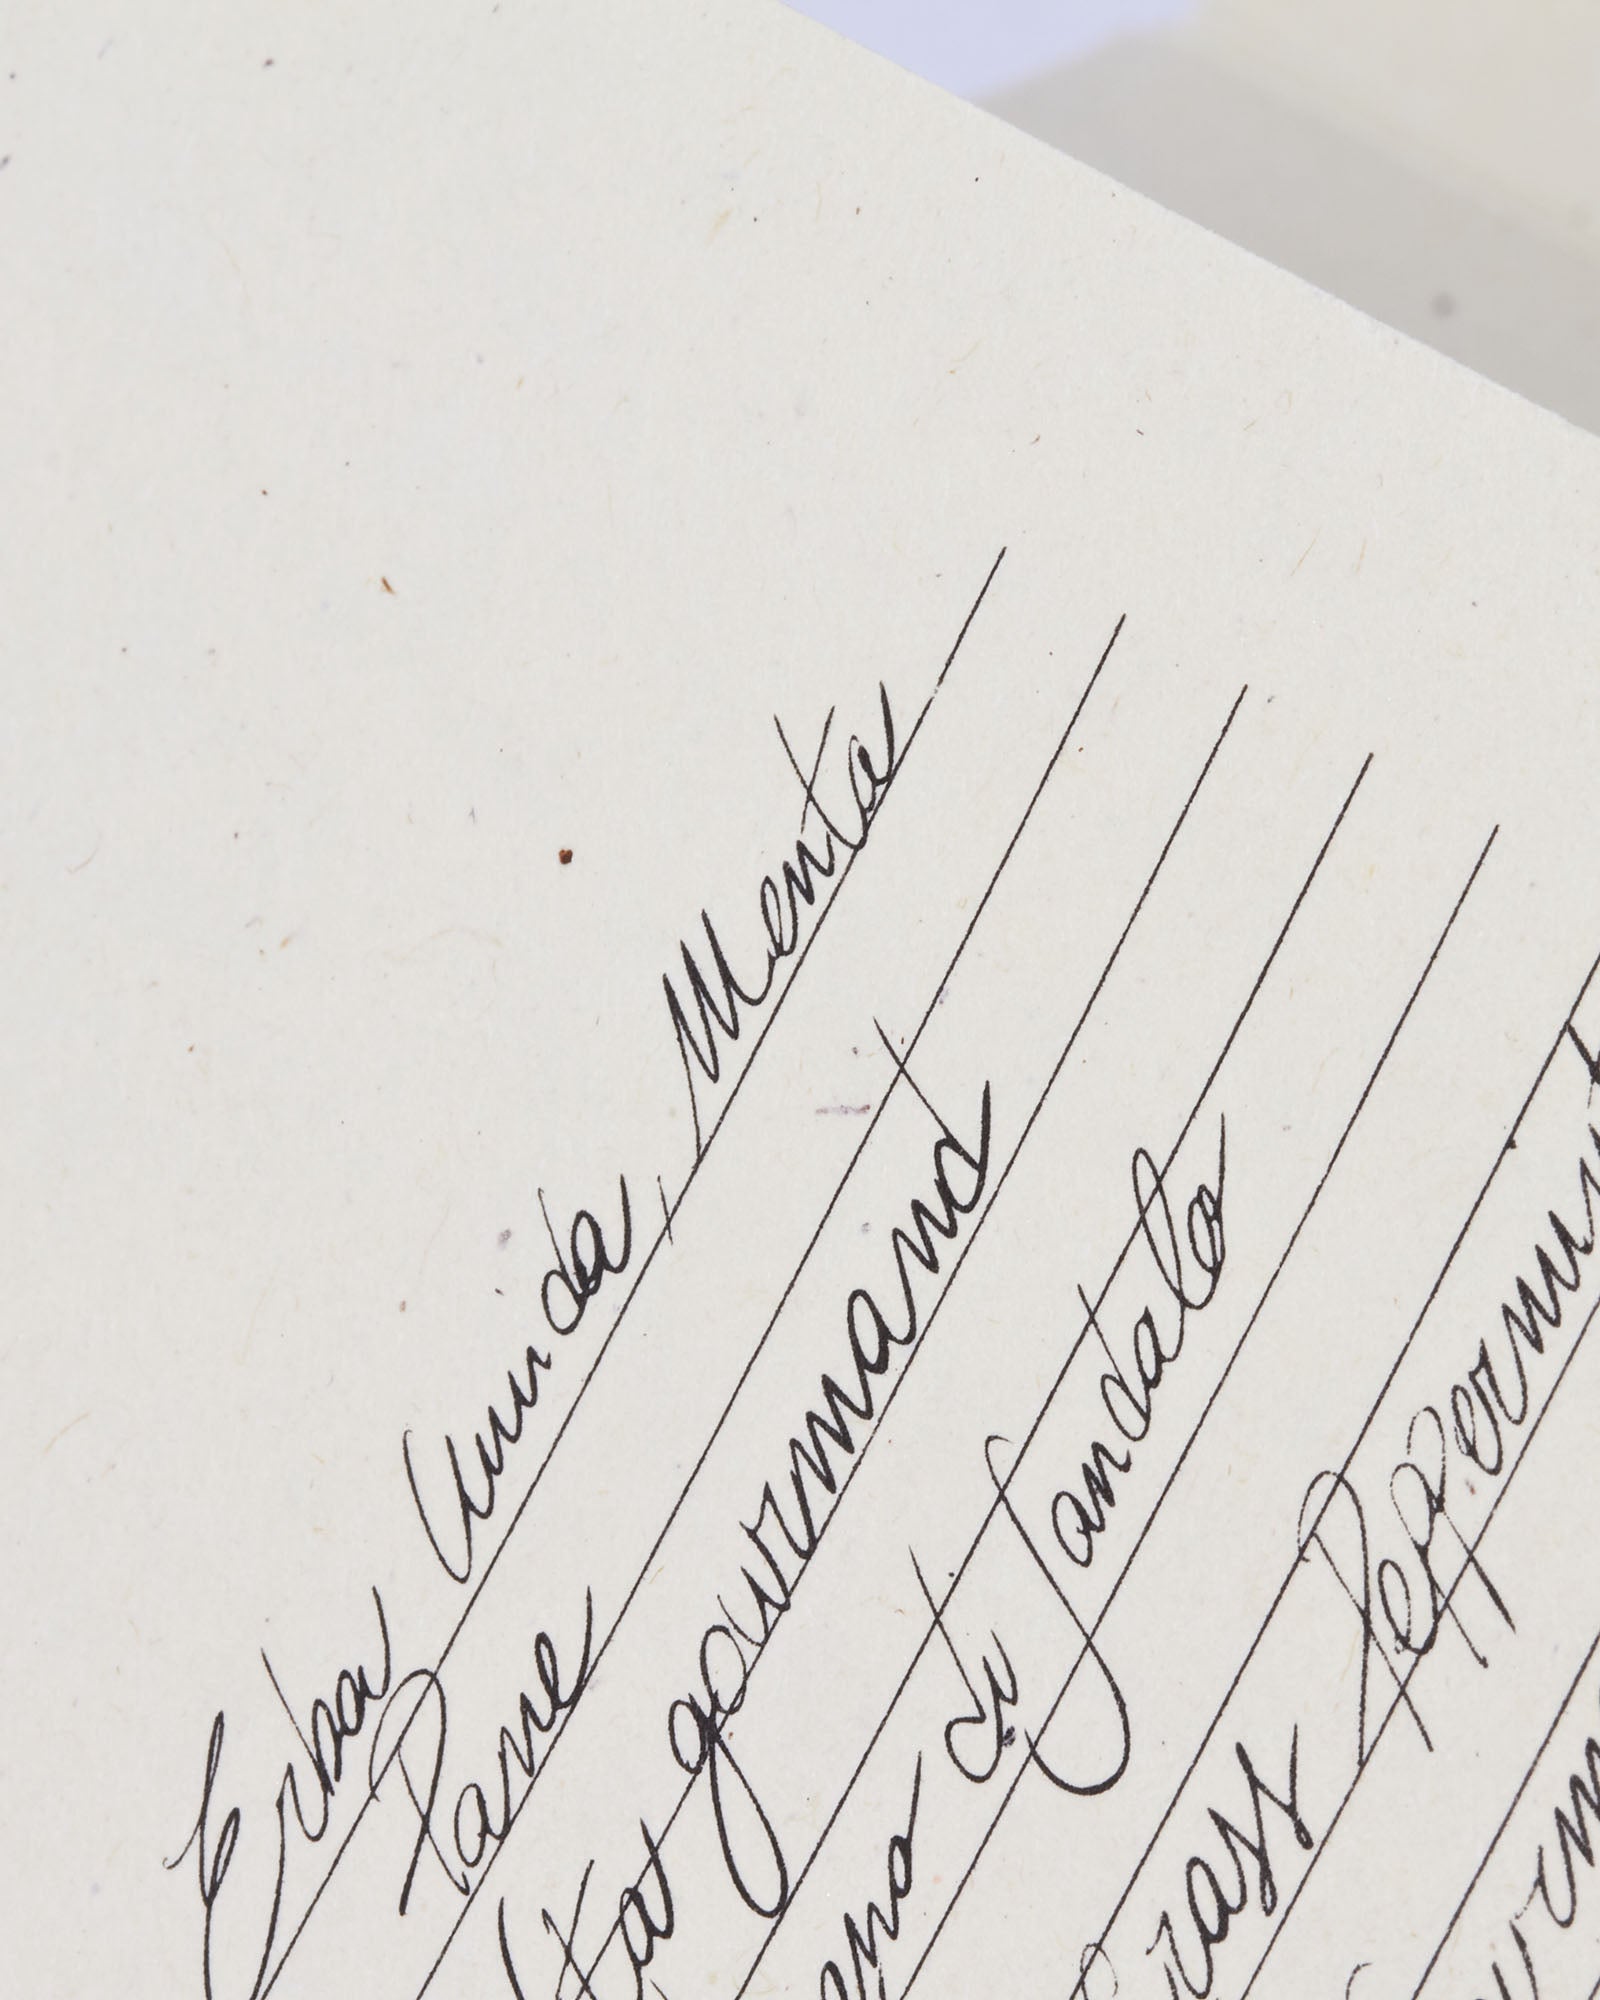 Erba Umida, Menta
Pane
gourmand
di Sandalo
Grass Peppermint